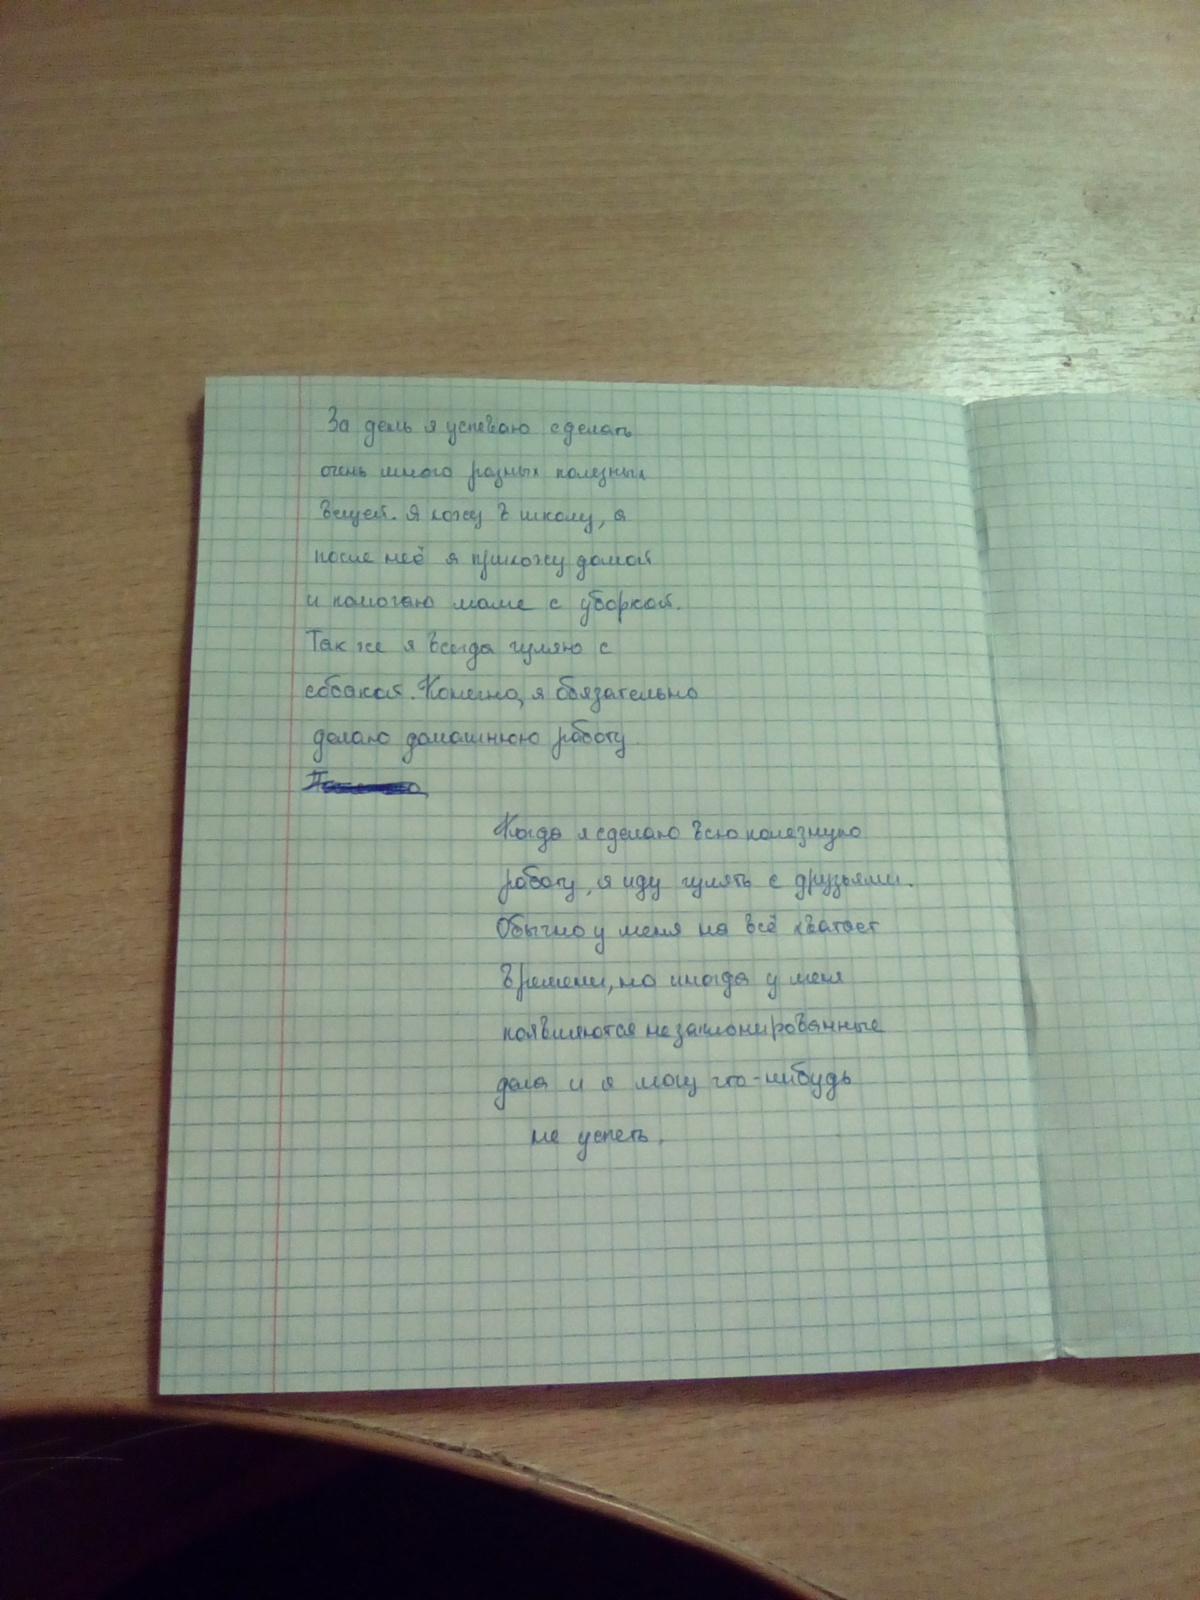 За день я успеваю сделать
очень много разных полезных
вещей. Я хожу в школу, а
после неё я прихожу домой
и помогаю маме с уборкой.
Так же я всегда гуляю с
собакой. Конечно, я обязательно
делаю домашнюю работу
Когда я сделаю всю полезную
работу, я иду гулять с друзьями.
Обычно у меня на всё хватает
времени, но иногда у меня
появляются незапланированные
дела и я могу что-нибудь
не успеть.